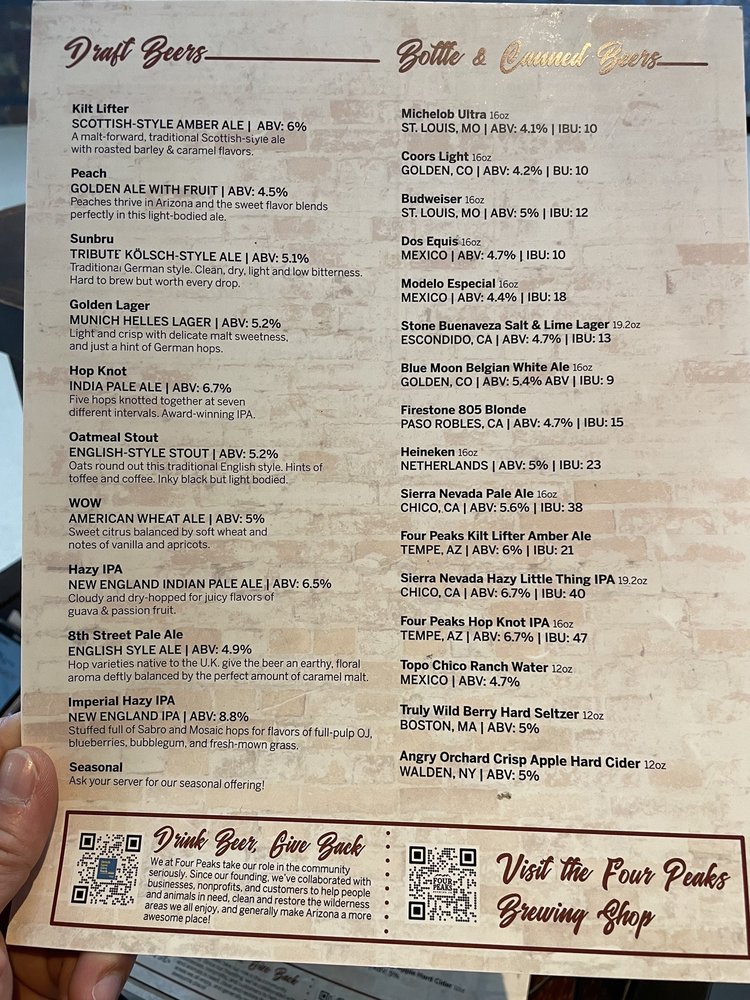 Draft Beers
Kilt Lifter
SCOTTISH-STYLE AMBER ALE | ABV: 6%
A malt-forward, traditional Scottish-style ale
with roasted barley & caramel flavors.
Peach
GOLDEN ALE WITH FRUIT | ABV: 4.5%
Peaches thrive in Arizona and the sweet flavor blends
perfectly in this light-bodied ale.
Sunbru
TRIBUTE KÖLSCH-STYLE ALE | ABV: 5.1%
Traditional German style. Clean, dry, light and low bitterness.
Hard to brew but worth every drop.
Golden Lager
MUNICH HELLES LAGER | ABV: 5.2%
Light and crisp with delicate malt sweetness,
and just a hint of German hops.
Hop Knot
INDIA PALE ALE | ABV: 6.7%
Five hops knotted together at seven
different intervals. Award-winning IPA.
Oatmeal Stout
ENGLISH-STYLE STOUT | ABV: 5.2%
Oats round out this traditional English style. Hints of
toffee and coffee. Inky black but light bodied.
WOW
AMERICAN WHEAT ALE | ABV: 5%
Sweet citrus balanced by soft wheat and
notes of vanilla and apricots.
Hazy IPA
NEW ENGLAND INDIAN PALE ALE | ABV: 6.5%
Cloudy and dry-hopped for juicy flavors of
guava & passion fruit.
8th Street Pale Ale
ENGLISH SYLE ALE | ABV: 4.9%
Hop varieties native to the U.K. give the beer an earthy, floral
aroma deftly balanced by the perfect amount of caramel malt.
Imperial Hazy IPA
NEW ENGLAND IPA | ABV: 8.8%
Stuffed full of Sabro and Mosaic hops for flavors of full-pulp OJ,
blueberries, bubblegum, and fresh-mown grass.
Seasonal
Ask your server for our seasonal offering!
Bottle & Canned Beers
Michelob Ultra 16oz
ST. LOUIS, MO | ABV: 4.1% | IBU: 10
Coors Light 16oz
GOLDEN, CO | ABV: 4.2% | BU: 10
Budweiser 16oz
ST. LOUIS, MO | ABV: 5% | IBU: 12
Dos Equis 16oz
MEXICO | ABV: 4.7% | IBU: 10
Modelo Especial 16oz
MEXICO | ABV: 4.4% | IBU: 18
Stone Buenaveza Salt & Lime Lager 19.2oz
ESCONDIDO, CA | ABV: 4.7% | IBU: 13
Blue Moon Belgian White Ale 16oz
GOLDEN, CO | ABV: 5.4% ABV | IBU: 9
Firestone 805 Blonde
PASO ROBLES, CA | ABV: 4.7% | IBU: 15
Heineken 16oz
NETHERLANDS | ABV: 5% | IBU: 23
Sierra Nevada Pale Ale 16oz
CHICO, CA | ABV: 5.6% | IBU: 38
Four Peaks Kilt Lifter Amber Ale
TEMPE, AZ | ABV: 6% | IBU: 21
Sierra Nevada Hazy Little Thing IPA 19.2oz
CHICO, CA | ABV: 6.7% | IBU: 40
Four Peaks Hop Knot IPA 16oz
TEMPE, AZ | ABV: 6.7% | IBU: 47
Topo Chico Ranch Water 12oz
MEXICO | ABV: 4.7%
Truly Wild Berry Hard Seltzer 12oz
BOSTON, MA | ABV: 5%
Angry Orchard Crisp Apple Hard Cider 12oz
WALDEN, NY | ABV: 5%
Drink Beer, Give Back
We at Four Peaks take our role in the community
seriously. Since our founding, we've collaborated with
businesses, nonprofits, and customers to help people
and animals in need, clean and restore the wilderness
areas we all enjoy, and generally make Arizona a more
awesome place!
FOUR
PEAKS
Visit the Four Peaks
Brewing Shop
Give Back